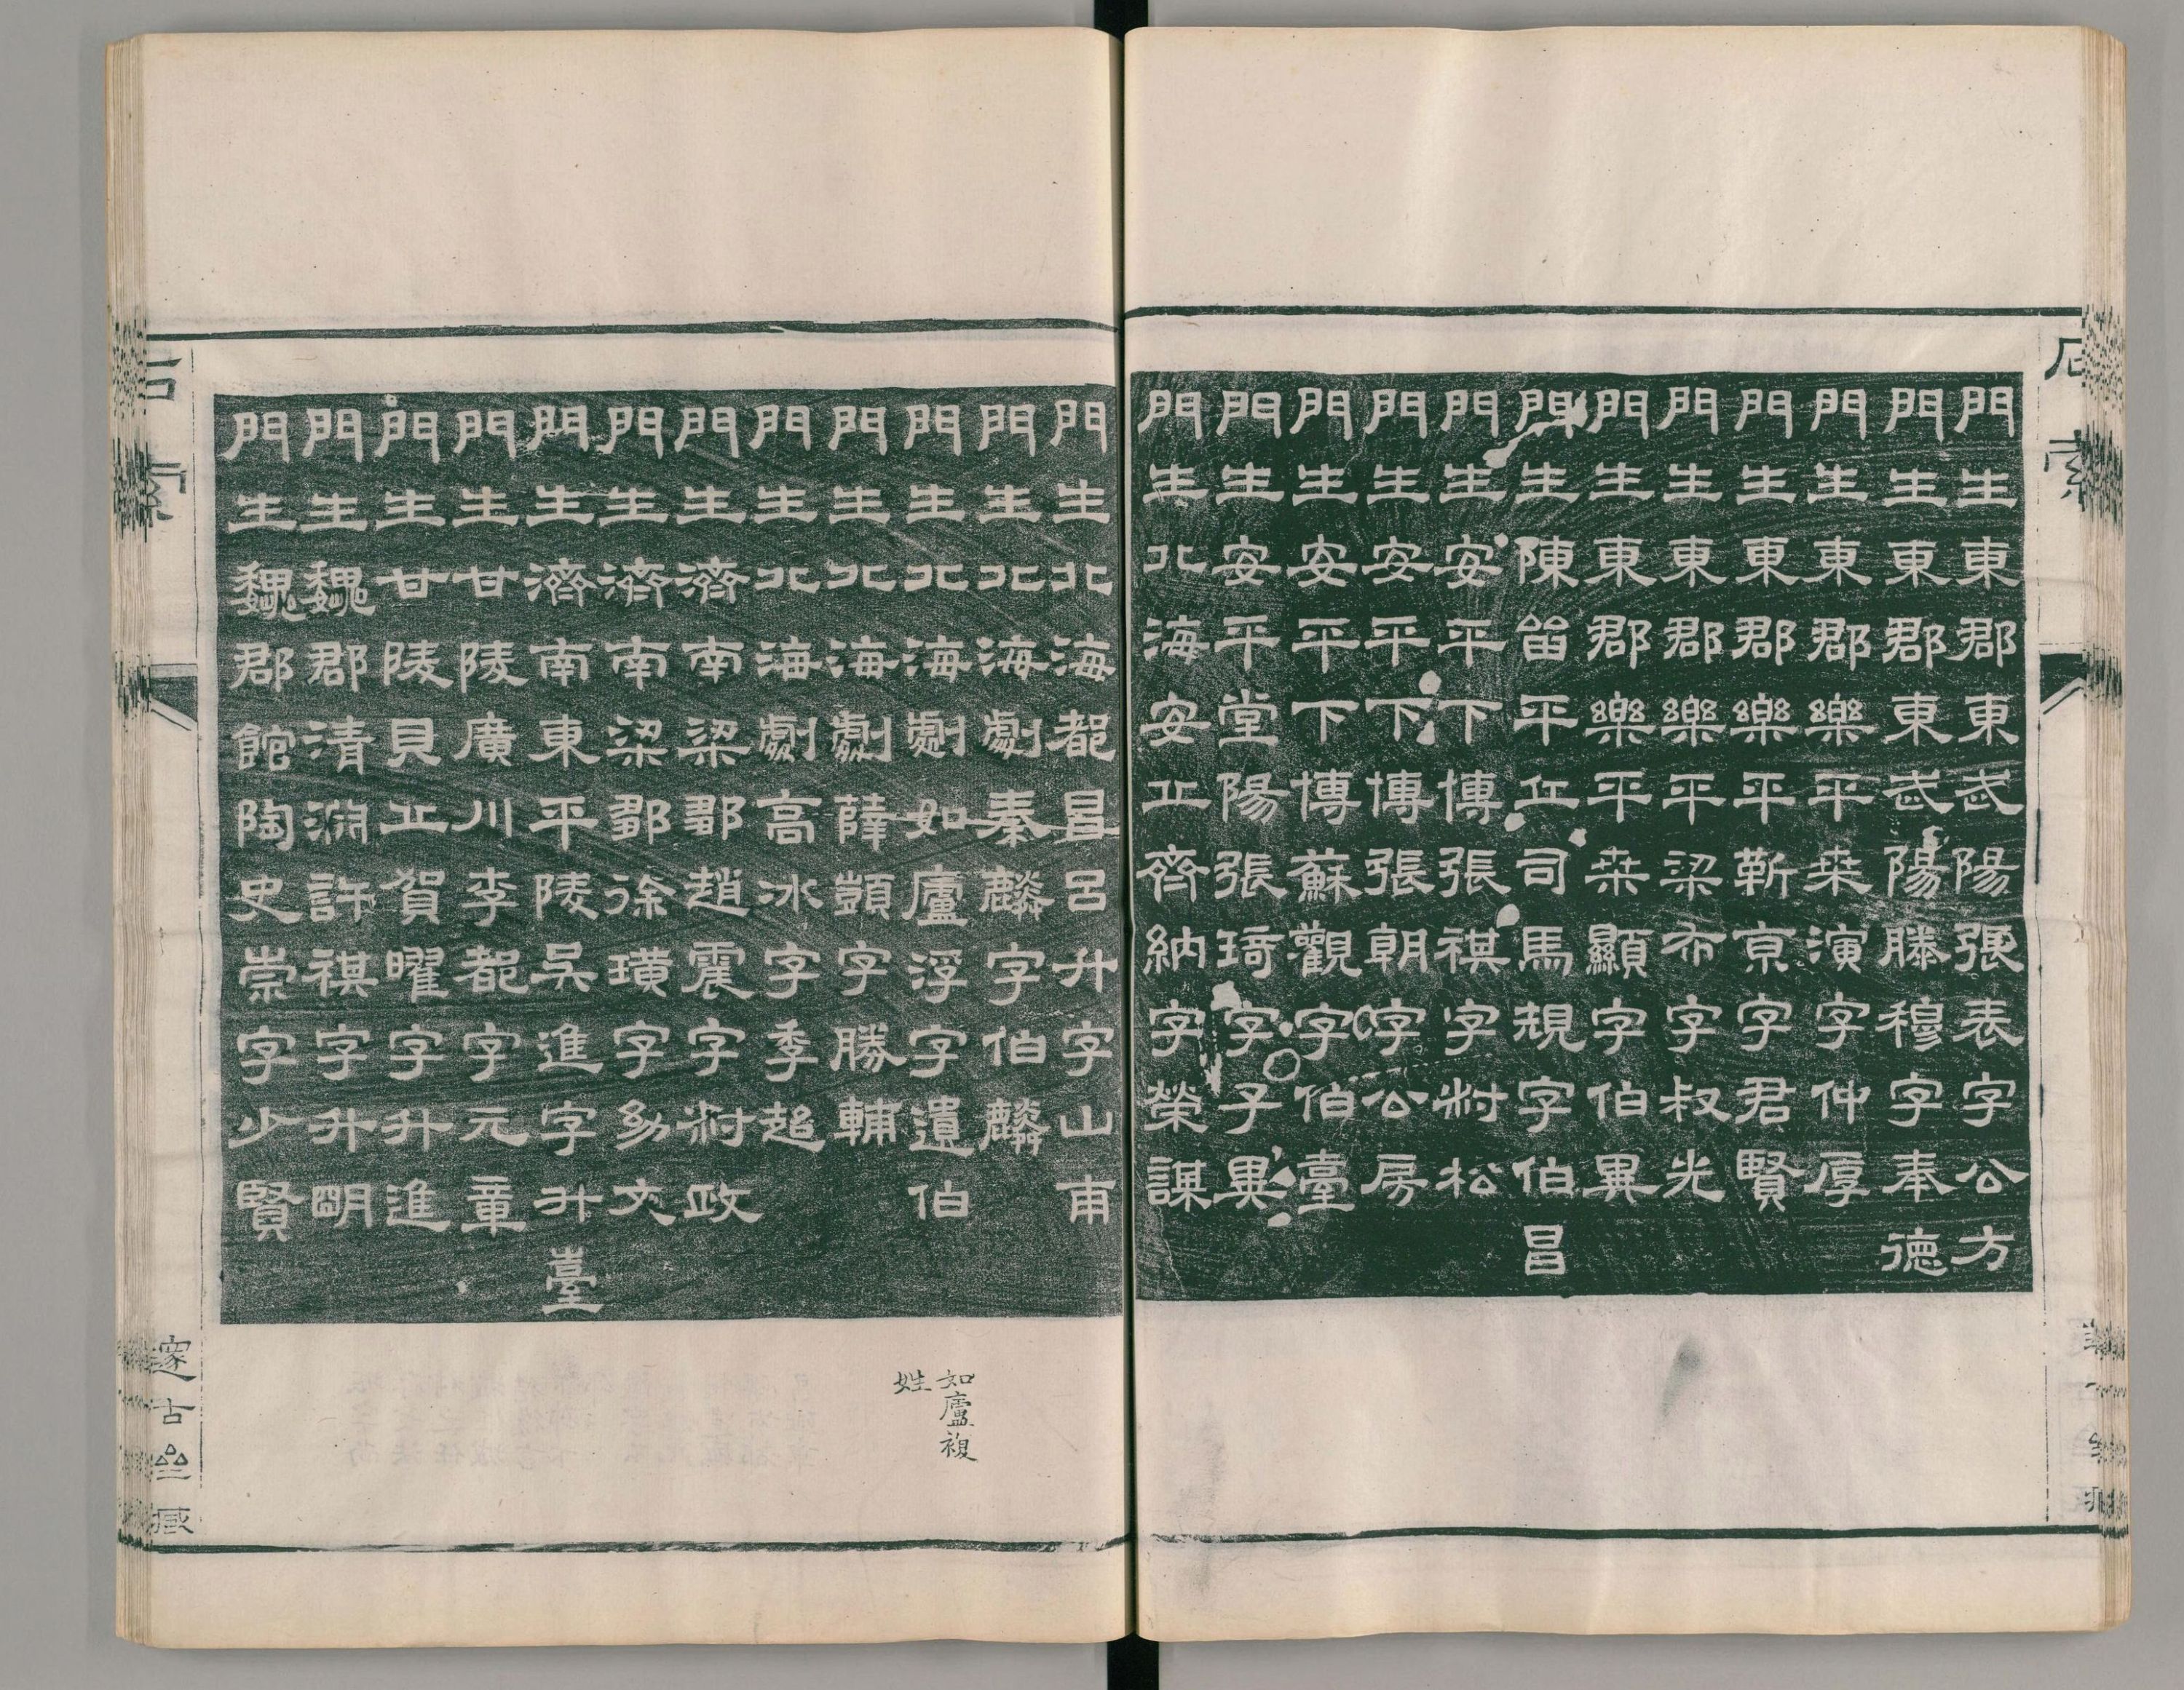 石索
門生東郡東武陽張表字公方
門生東郡東武陽滕穆字奉德
門生東郡樂平桒演字仲厚
門生東郡樂平靳京字君賢
門生東郡樂平梁布字叔光
門生東郡樂平桒顯字伯異
門生陳留平丘司馬規字伯昌
門生安平下博張祺字叔松
門生安平下博張朝字公房
門生安平下博蘇觀字伯臺
門生安平堂陽張琦字子異
門生北海安丘齊納字榮謀
門生北海都昌呂升字山甫
門生北海劇秦麟字伯麟
門生北海劇如廬浮字遺伯
門生北海劇薛顗字勝輔
門生北海劇高冰字季超
門生濟南梁鄒趙震字叔政
門生濟南梁鄒徐璜字幼文
門生濟南東平陵吳進字升臺
門生甘陵廣川李都字元章
門生甘陵貝丘賀曜字升進
門生魏郡清淵許祺字升明
門生魏郡館陶史崇字少賢
如廬複
姓
石索
邃古齋藏